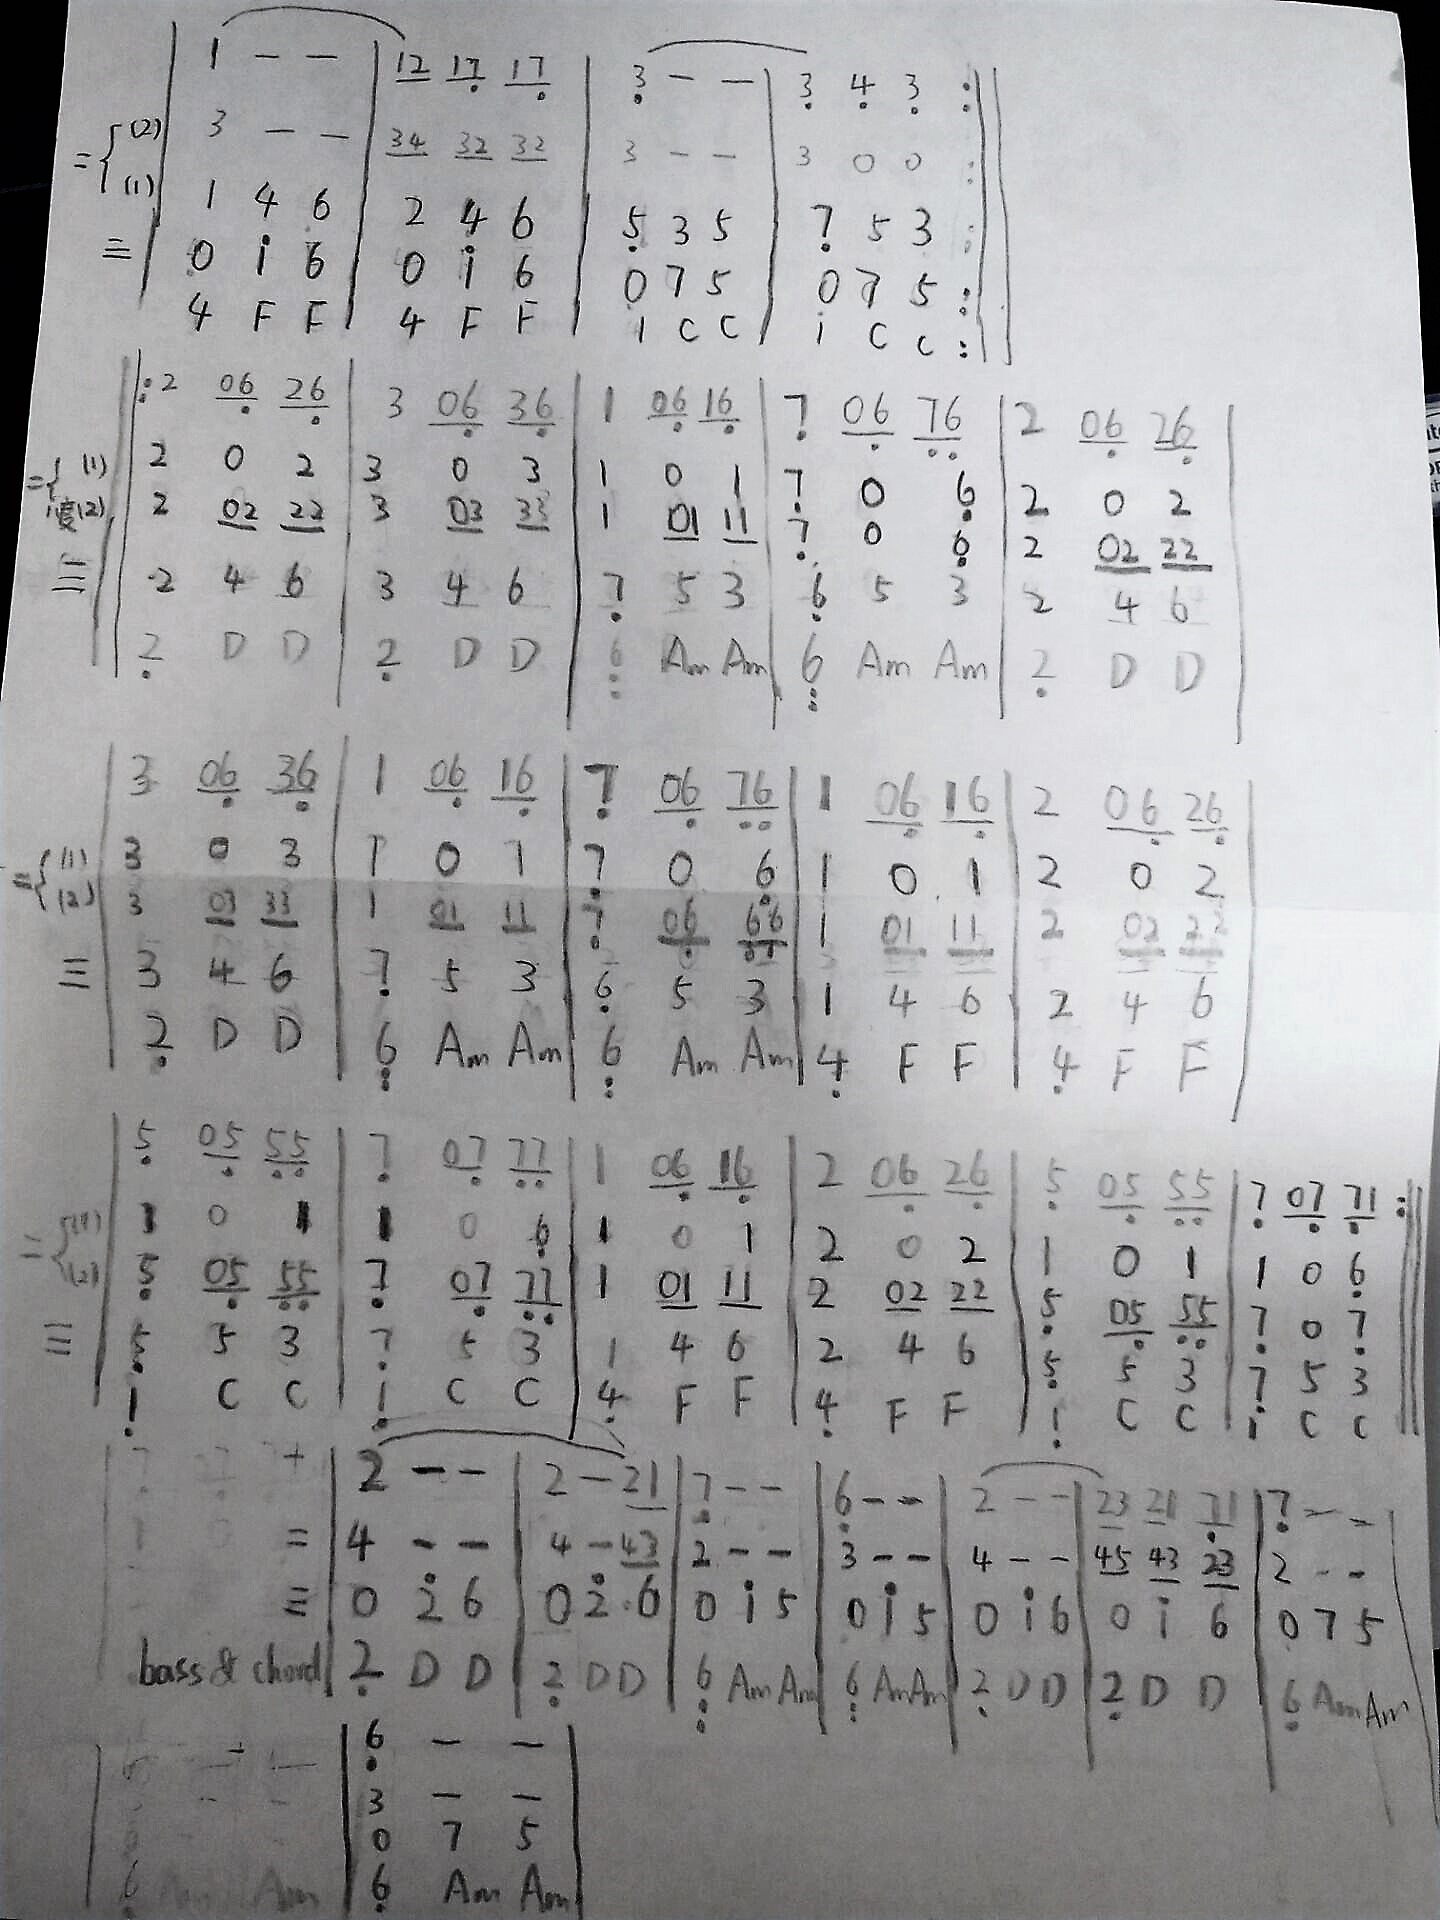 1 - - | 12 17 17 | 3 - - | 3 4 3 :||
={ (2) 3 - - | 34 32 32 | 3 - - | 3 0 0 :||
(1) 1 4 6 | 2 4 6 | 5 3 5 | 7 5 3 :||
≡ 0 i 6 | 0 i 6 | 0 7 5 | 0 7 5 :||
4 F F | 4 F F | 1 C C | 1 C C :||
||: 2 06 26 | 3 06 36 | 1 06 16 | 7 06 76 | 2 06 26 |
={ (1) 2 0 2 | 3 0 3 | 1 0 1 | 7 0 6 | 2 0 2 |
(2) 2 02 22 | 3 03 33 | 1 01 11 | 7 0 6 | 2 02 22 |
≡ 2 4 6 | 3 4 6 | 7 5 3 | 6 5 3 | 2 4 6 |
2 D D | 2 D D | 6 Am Am | 6 Am Am | 2 D D |
3 06 36 | 1 06 16 | 7 06 76 | 1 06 16 | 2 06 26 |
={ (1) 3 0 3 | 1 0 1 | 7 0 6 | 1 0 1 | 2 0 2 |
(2) 3 03 33 | 1 01 11 | 7 06 66 | 1 01 11 | 2 02 22 |
≡ 3 4 6 | 7 5 3 | 6 5 3 | 1 4 6 | 2 4 6 |
2 D D | 6 Am Am | 6 Am Am | 4 F F | 4 F F |
5 05 55 | 7 07 77 | 1 06 16 | 2 06 26 | 5 05 55 | 7 07 71 :||
={ (1) 1 0 1 | 1 0 6 | 1 0 1 | 2 0 2 | 1 0 1 | 1 0 6
(2) 5 05 55 | 7 07 77 | 1 01 11 | 2 02 22 | 5 05 55 | 7 0 7
≡ 5 5 3 | 7 5 3 | 1 4 6 | 2 4 6 | 5 5 3 | 7 5 3
1 C C | 1 C C | 4 F F | 4 F F | 1 C C | 1 C C
2 - - | 2 - 21 | 7 - - | 6 - - | 2 - - | 23 21 71 | 7 - -
= 4 - - | 4 - 43 | 2 - - | 3 - - | 4 - - | 45 43 23 | 2 - -
≡ 0 2 6 | 0 2 6 | 0 i 5 | 0 i 5 | 0 i 6 | 0 i 6 | 0 7 5
bass & chord | 2 D D | 2 D D | 6 Am Am | 6 Am Am | 2 D D | 2 D D | 6 Am Am
6 - - |
3 - - |
0 7 5 |
6 Am Am |